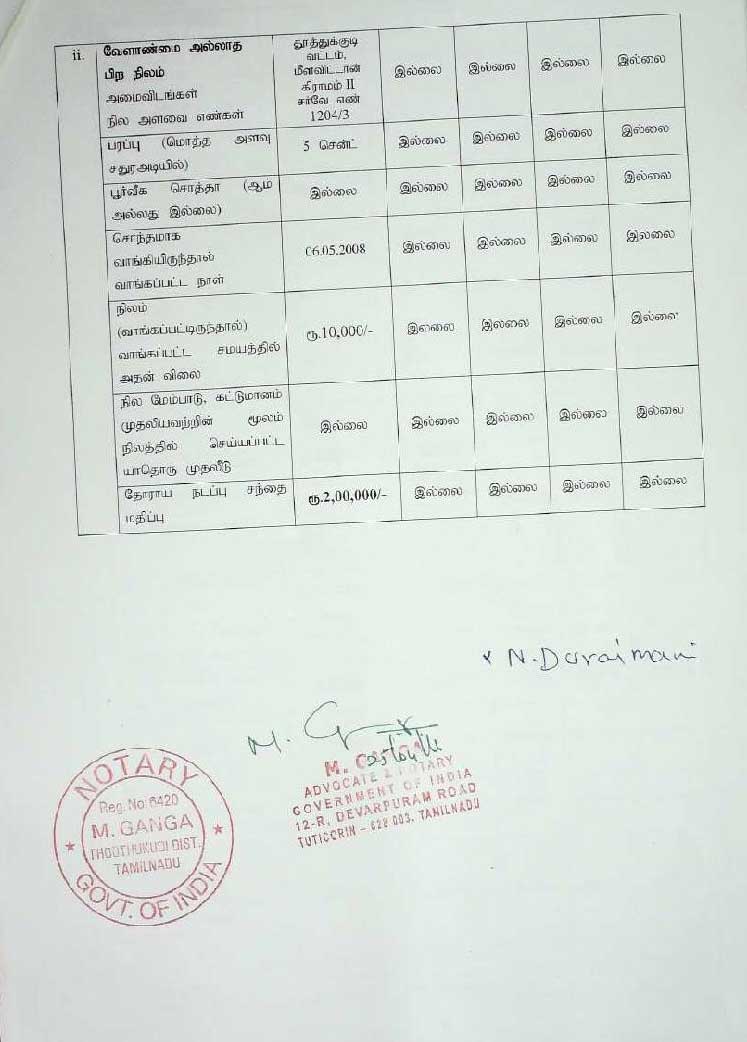 ii. வேளாண்மை அல்லாத
பிற நிலம்
அமைவிடங்கள்
நில அளவை எண்கள்
தூத்துக்குடி
வட்டம்,
மீளவிட்டான்
கிராமம் II
சர்வே எண்
1204/3
இல்லை இல்லை இல்லை இல்லை
பரப்பு (மொத்த அளவு
சதுரஅடியில்)
5 சென்ட் இல்லை இல்லை இல்லை இல்லை
பூர்வீக சொத்தா (ஆம்
அல்லது இல்லை)
இல்லை இல்லை இல்லை இல்லை இல்லை
சொந்தமாக
வாங்கியிருந்தால்
வாங்கப்பட்ட நாள்
06.05.2008 இல்லை இல்லை இல்லை இல்லை
நிலம்
(வாங்கப்பட்டிருந்தால்)
வாங்கப்பட்ட சமயத்தில்
அதன் விலை
ரூ.10,000/- இல்லை இல்லை இல்லை இல்லை
நில மேம்பாடு, கட்டுமானம்
முதலியவற்றின் மூலம்
நிலத்தில் செய்யப்பட்ட
யாதொரு முதலீடு
இல்லை இல்லை இல்லை இல்லை இல்லை
தோராய நடப்பு சந்தை
மதிப்பு
ரூ.2,00,000/- இல்லை இல்லை இல்லை இல்லை
x N. Duraimani
M. G
M.
ADVOCATE & NOTARY
GOVERNMENT OF INDIA
12-R, DEVARPURAM ROAD
TUTICORIN - 628 003, TAMILNADU
NOTARY
Reg. No 6420
M. GANGA
THOOTHUKUDI DIST.
TAMILNADU
GOVT. OF INDIA